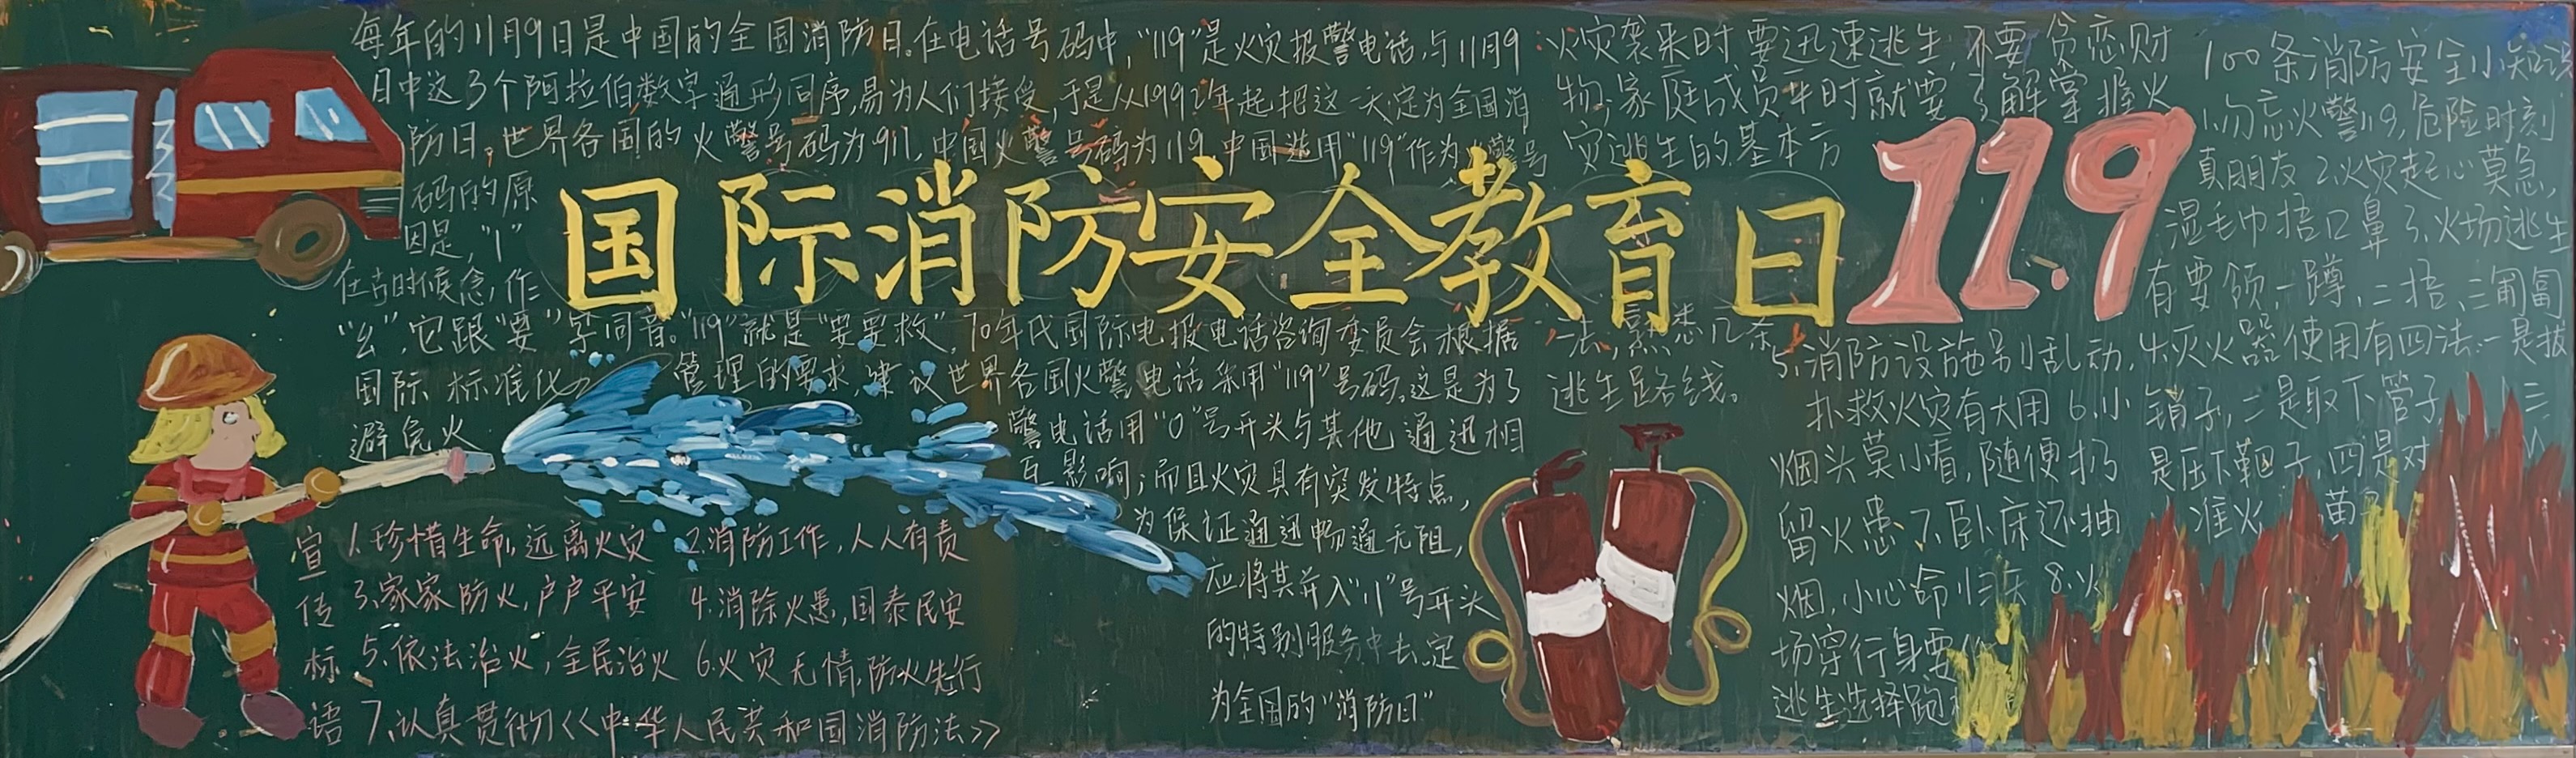 每年的11月9日是中国的全国消防日。在电话号码中，“119”是火灾报警电话，与11月9
日中这3个阿拉伯数字通形同序，易为人们接受，于是从1992年起把这一天定为全国消
防日。世界各国的火警号码为911，中国火警号码为119，中国选用“119”作为火警号
码的原
因是，“1”
在古时候念，作
“幺”，它跟“要”字同音。“119”就是“要要救”，70年代国际电报电话咨询委员会根据
国际 标准化 管理的要求，建议世界各国火警电话采用“119”号码，这是为了
避免火
警电话用“0”号开头与其他通迅相
互影响；而且火灾具有突发特点，
为保证通迅畅通无阻，
应将其并入“11”号开头
的特别服务中去，定
为全国的“消防日”
国际消防安全教育日
11.9
火灾袭来时要迅速逃生，不要贪恋财
物；家庭成员平时就要了解掌握火
灾逃生的基本方
法，熟悉几条
逃生路线。
宣传标语
1.珍惜生命，远离火灾 2.消防工作，人人有责
3.家家防火，户户平安 4.消除火患，国泰民安
5.依法治火，全民治火 6.火灾无情，防火先行
7.认真贯彻<<中华人民共和国消防法>>
100条消防安全小知识
1.勿忘火警119，危险时刻
真朋友 2.火灾起心莫急，
湿毛巾捂口鼻 3.火场逃生
有要领，一蹲，二捂，三匍匐
4.灭火器使用有四法：一是拔
销子，二是取下管子，三
是压下靶子，四是对
准火苗
5.消防设施别乱动，
扑救火灾有大用 6.小
烟头莫小看，随便扔
留火患 7.卧床还抽
烟，小心命归天 8.火
场穿行身要
逃生选择跑